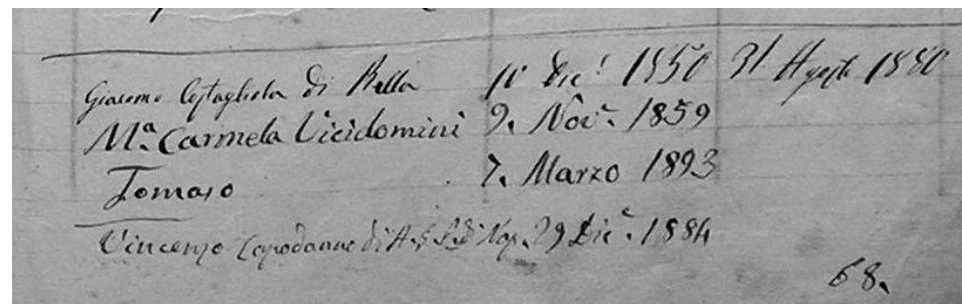 Giacomo Costagliola di Bella 10 Dic.e 1850 31 Agosto 1880
M.a Carmela Vicidomini 9. Nov.e 1859
Tomaso 7. Marzo 1893
Vincenzo Capodanno di Nap. 29 Dic.e 1884
68.